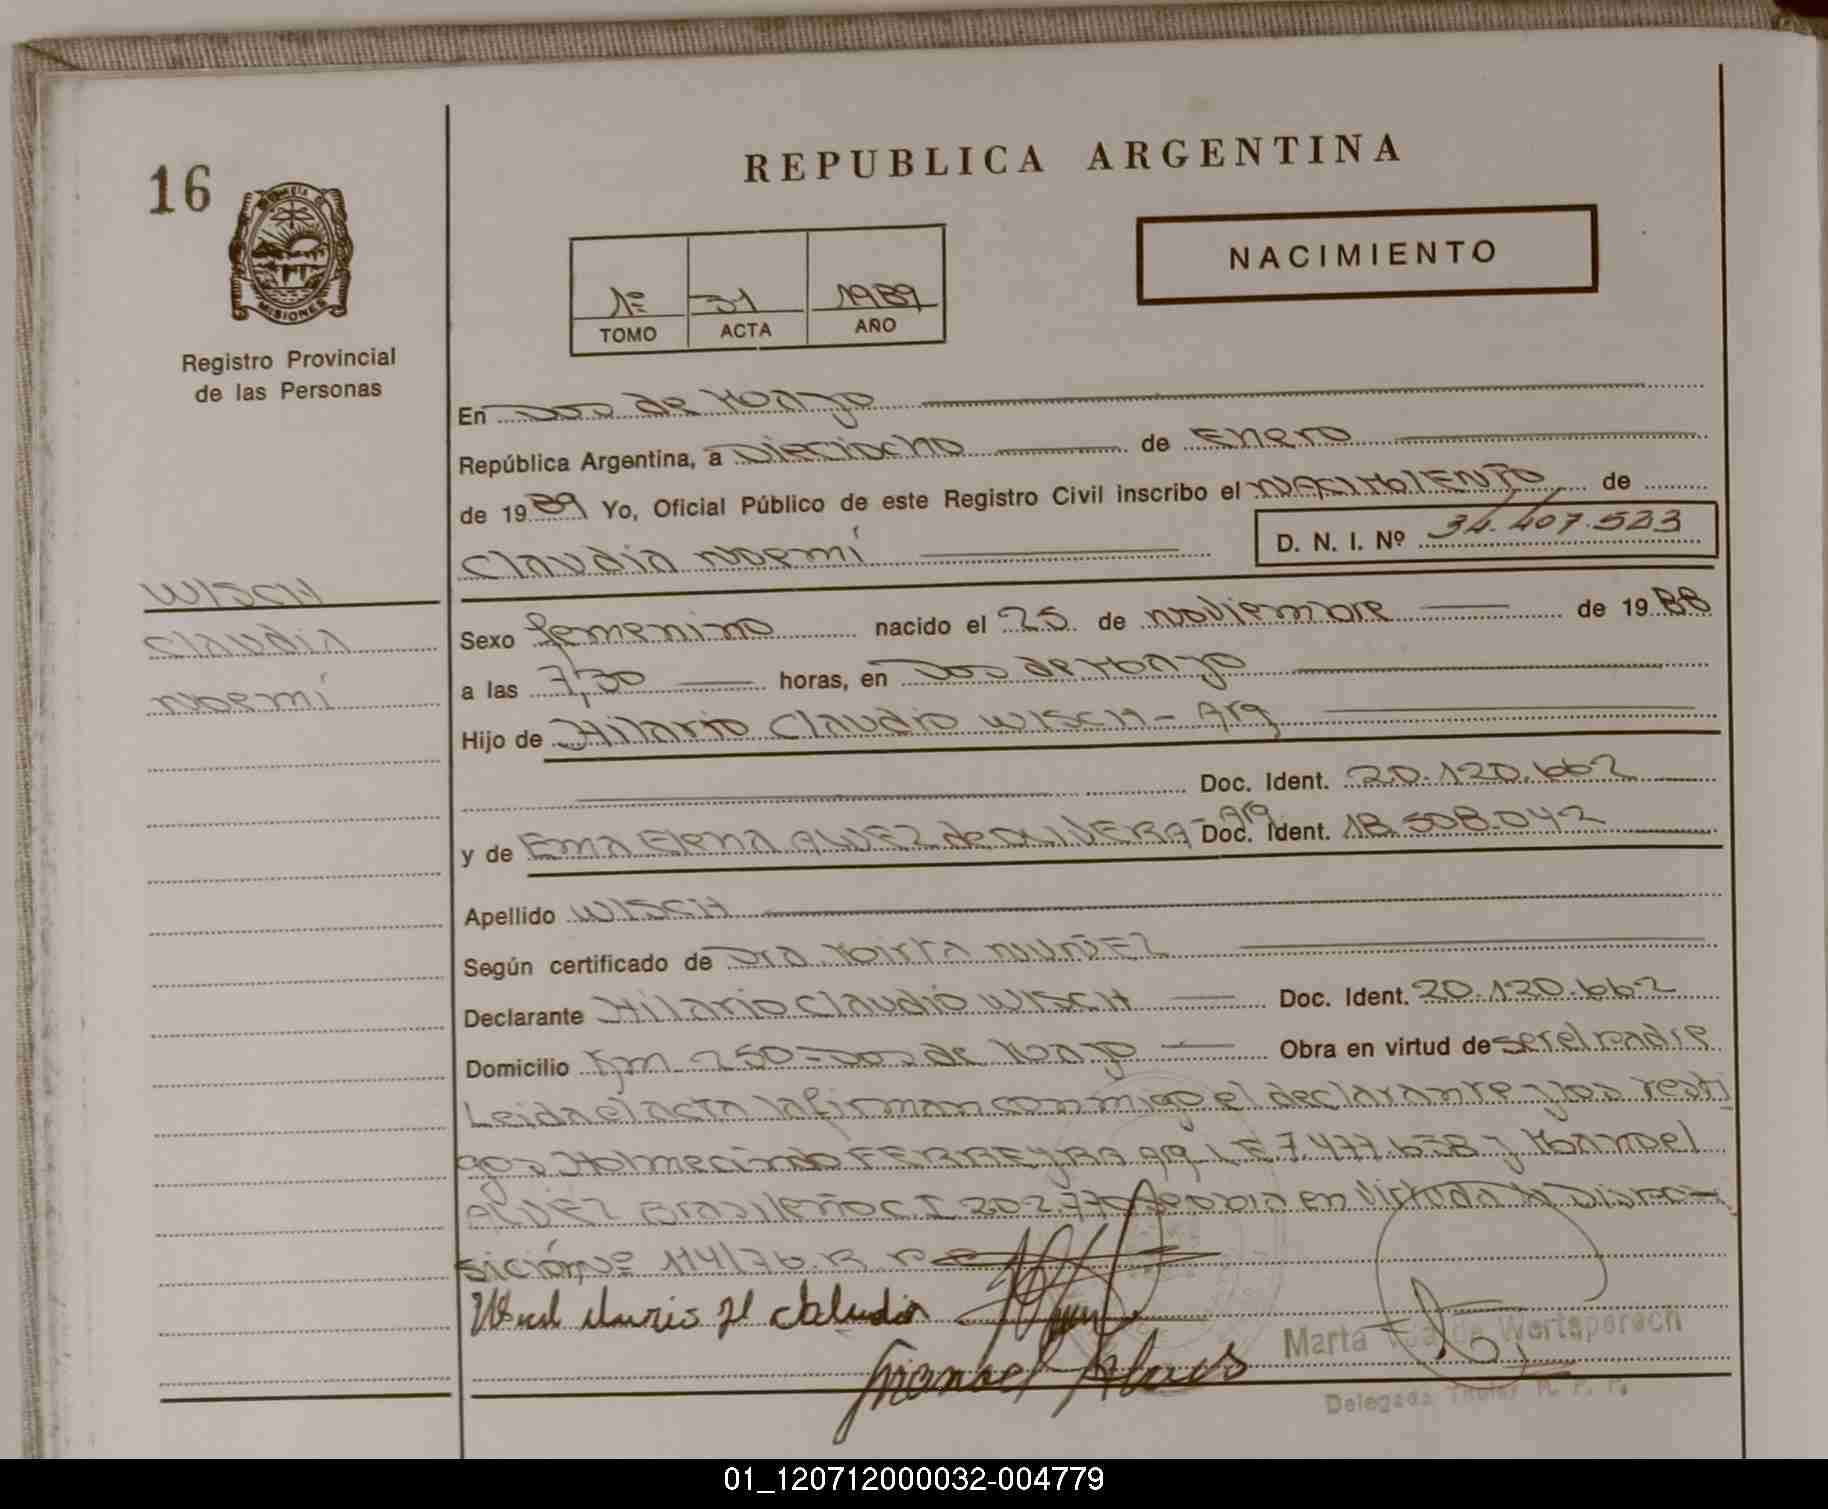 REPUBLICA ARGENTINA
16
NACIMIENTO
MISIONES
1º 31 1989
TOMO ACTA AÑO
Registro Provincial
de las Personas
En Dos de Mayo
República Argentina, a Dieciocho de Enero
de 1989 Yo, Oficial Público de este Registro Civil inscribo el NACIMIENTO de
Claudia Noemí D. N. I. Nº 34.407.523
WISCH
Claudia
Noemí
Sexo femenino nacido el 25 de noviembre de 1988
a las 7,30 horas, en Dos de Mayo
Hijo de Hilario Claudio WISCH - Arg
Doc. Ident. 20.120.662
y de Ema Elena ALVEZ de OLIVERA - Arg Doc. Ident. 18.508.042
Apellido WISCH
Según certificado de Dra. Mirta NUÑEZ
Declarante Hilario Claudio WISCH Doc. Ident. 20.120.662
Domicilio Km 250 - Dos de Mayo Obra en virtud de ser el padre
Leida el acta la firman conmigo el declarante y los testi
gos FERREYRA Arg L.E 7.477.638 y Manoel
ALVEZ Brasileño C.I 202.770 en virtud a la Dispo-
sición Nº 114/76. R. P.
Manoel Alves
Marta de Wertsperech
Delegada Titular R. P. P.
01_120712000032-004779